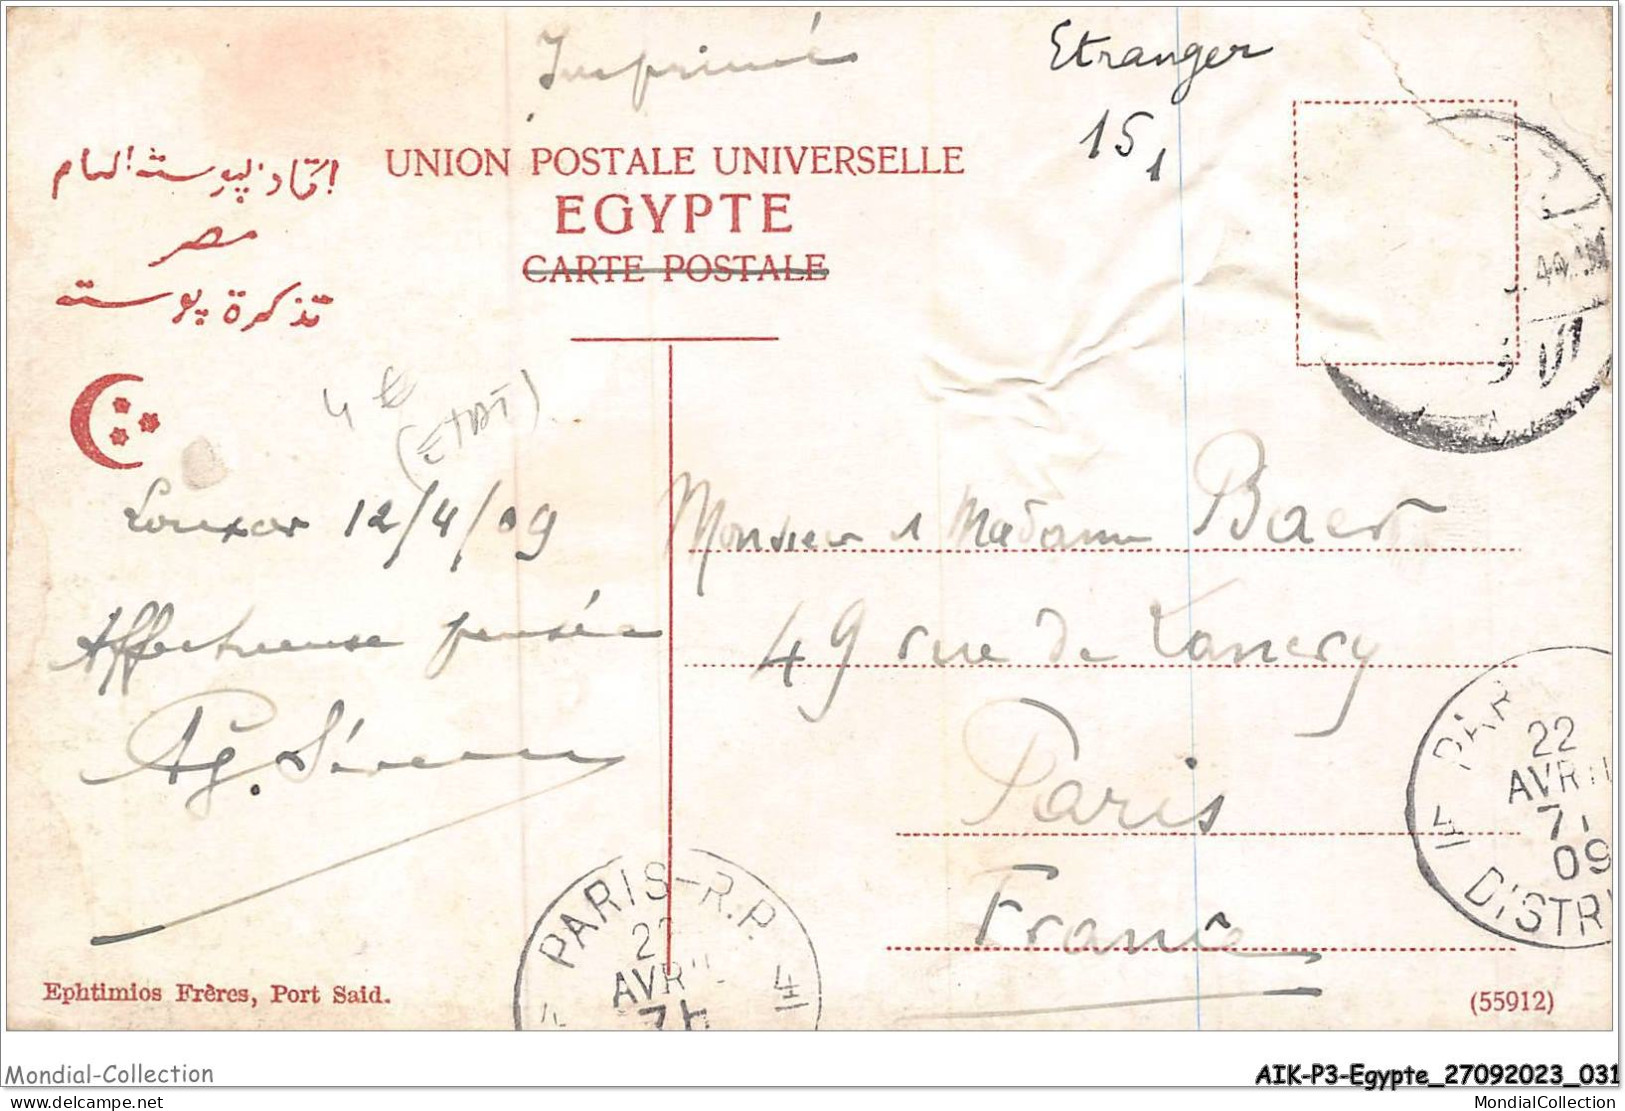 Imprimé
Etranger
15
1
UNION POSTALE UNIVERSELLE
EGYPTE
CARTE POSTALE
اتحاد البوستة العام
مصر
تذكرة پوستة
4 €
(ETAT)
Louxor 12/4/09
Affectueuse pensée
Monsieur & Madame Baer
49 rue de Lancry
Paris
France
PARIS-R.P. 4
22
AVRIL
7
22
AVRI
7
09
DISTRI
Ephtimios Frères, Port Said.
(55912)
Mondial-Collection
AIK-P3-Egypte_27092023_031
www.delcampe.net
MondialCollection